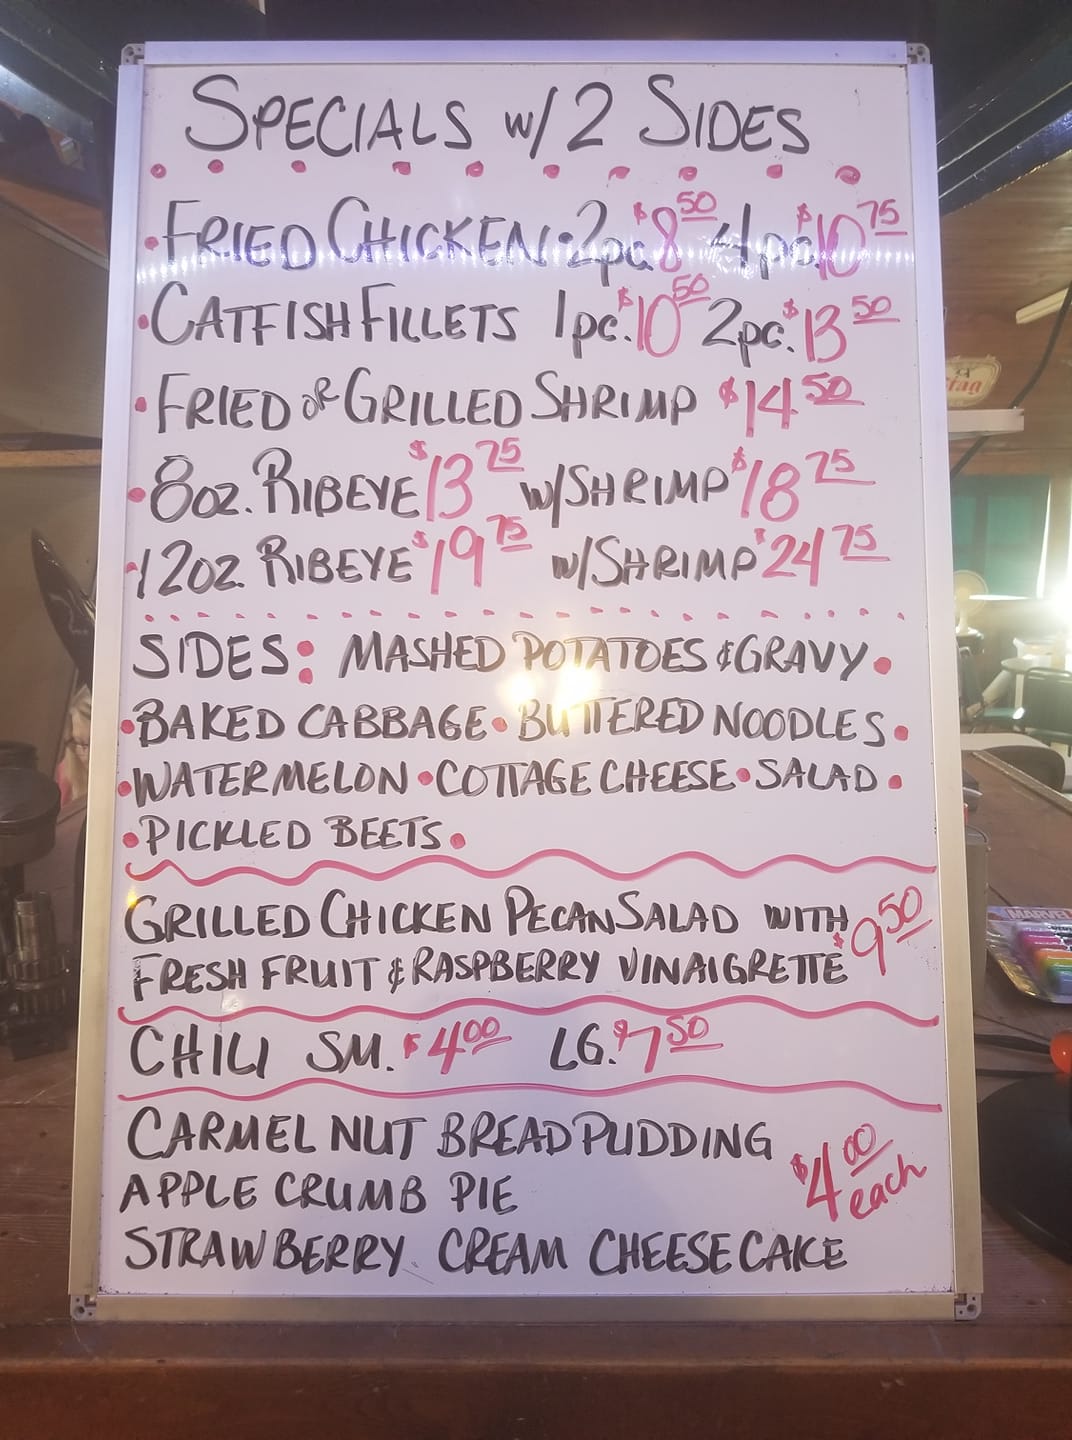 SPECIALS w/ 2 SIDES
• FRIED CHICKEN • 2pc. $8.50 4pc. $10.75
• CATFISH FILLETS 1pc. $10.50 2pc. $13.50
• FRIED OR GRILLED SHRIMP $14.50
• 8oz. RIBEYE $13.75 w/SHRIMP $18.75
• 12oz. RIBEYE $19.75 w/SHRIMP $24.75
SIDES: MASHED POTATOES & GRAVY •
• BAKED CABBAGE • BUTTERED NOODLES •
• WATERMELON • COTTAGE CHEESE • SALAD •
• PICKLED BEETS •
GRILLED CHICKEN PECAN SALAD WITH
FRESH FRUIT & RASPBERRY VINAIGRETTE $9.50
CHILI SM. $4.00 LG. $7.50
CARMEL NUT BREAD PUDDING
APPLE CRUMB PIE
$4.00 each
STRAWBERRY CREAM CHEESECAKE
MARVEL